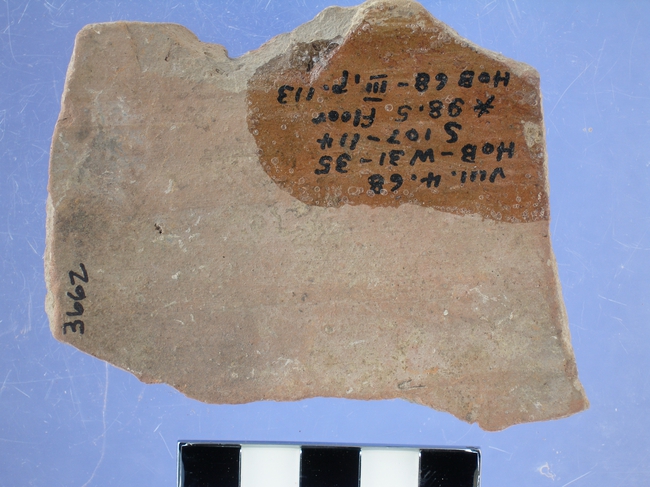 VIII.4.68
HOB-W31-35
S 107-114
*98.5 floor
HOB 68-III, p.113
3662